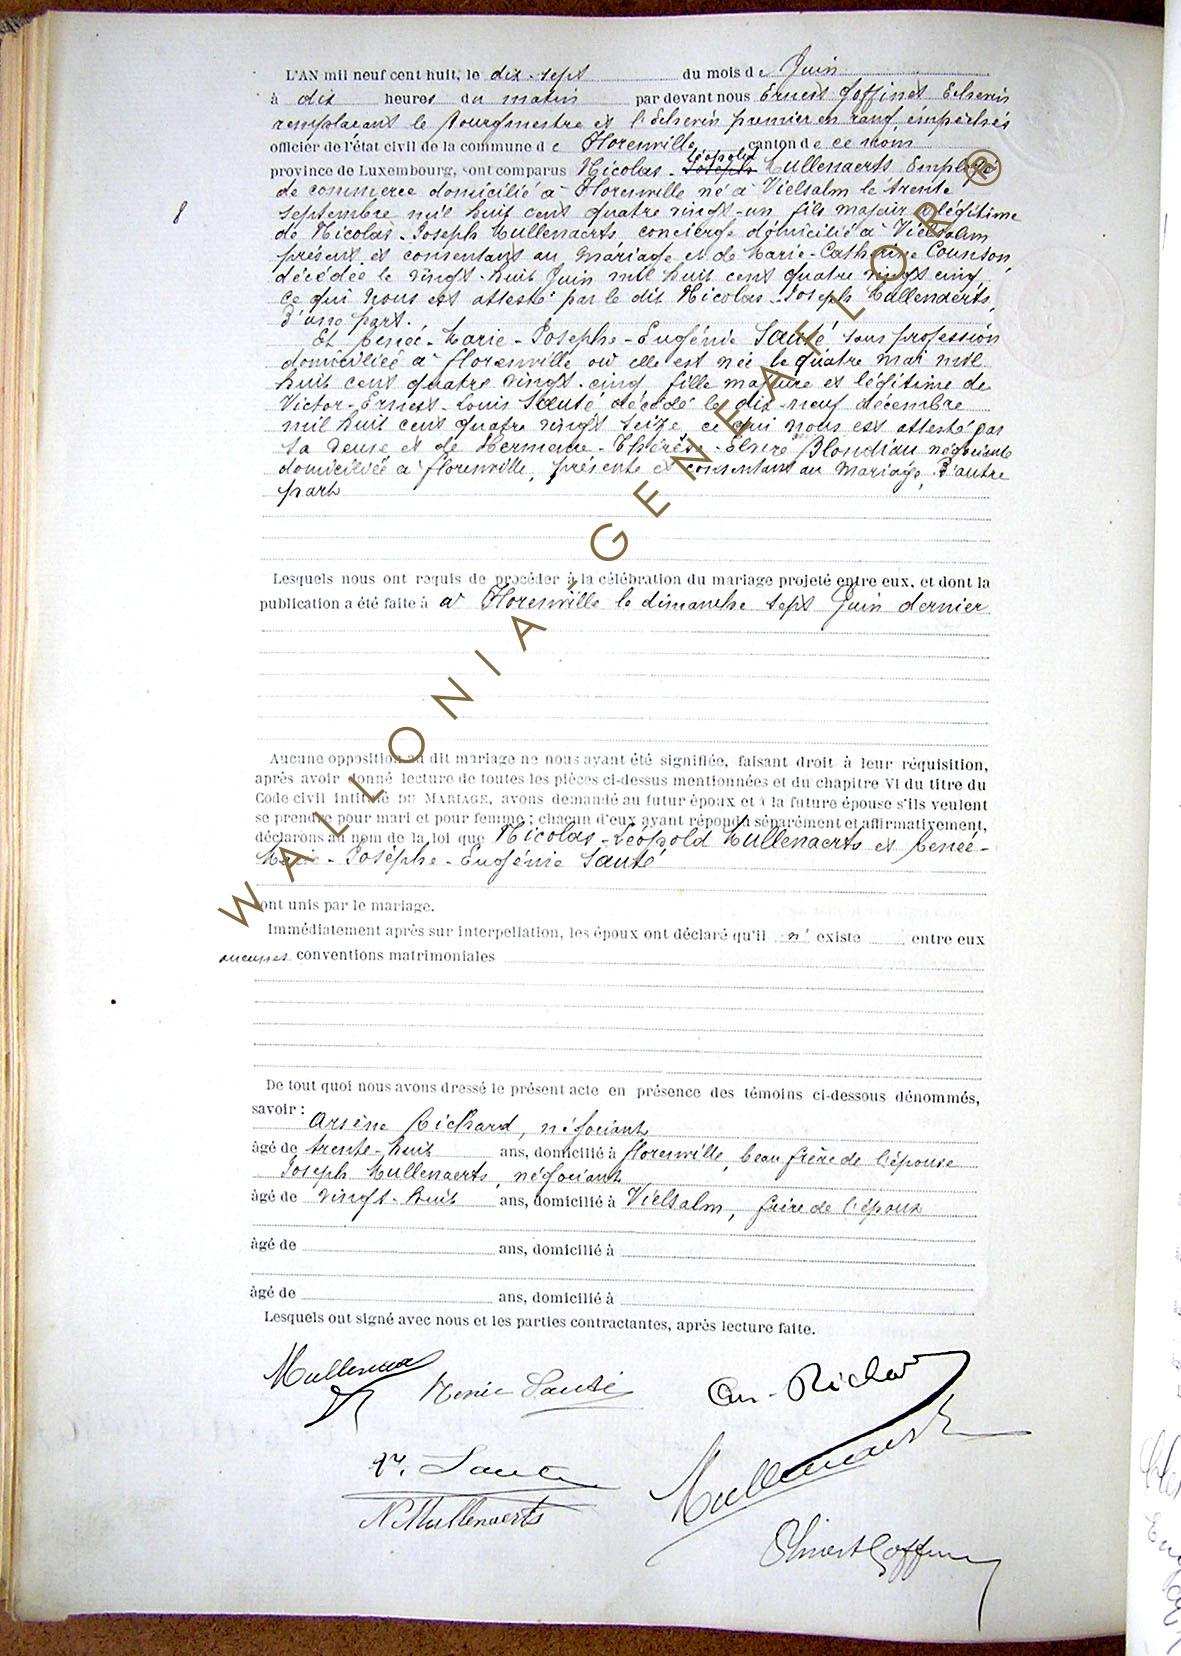 L'AN mil neuf cent huit, le dix-sept du mois de Juin
à dix heures du matin par devant nous Ernest Goffinet Echevin
remplaçant le bourgmestre et l'Echevin premier en rang, empêchés
officier de l'état civil de la commune de Florenville canton de ce nom
Léopold
province de Luxembourg, sont comparus Nicolas-Joseph Mullenaerts Employé
de commerce domicilié à Florenville né à Vielsalm le trente
8
septembre mil huit cent quatre vingt-un fils majeur et légitime
de Nicolas-Joseph Mullenaerts concierge domicilié à Vielsalm
présent et consentant au mariage et de Marie-Catherine Counson,
décédée le vingt-huit Juin mil huit cent quatre vingt cinq,
ce qui nous est attesté par le dit Nicolas-Joseph Mullenaerts,
d'une part.
Et Renée-Marie-Josèphe-Eugénie Sauté sans profession
domiciliée à Florenville où elle est née le quatre mai mil
huit cent quatre vingt-cinq, fille majeure et légitime de
Victor-Ernest-Louis Sauté décédé le dix-neuf décembre
mil huit cent quatre vingt seize, ce qui nous est attesté par
sa veuve et de Hermance-Thérèse-Elvire Blondiau négociante
domiciliée à Florenville, présente et consentant au mariage, d'autre
part
Lesquels nous ont requis de procéder à la célébration du mariage projeté entre eux, et dont la
publication a été faite à à Florenville le dimanche sept Juin dernier
Aucune opposition au dit mariage ne nous ayant été signifiée, faisant droit à leur réquisition,
après avoir donné lecture de toutes les pièces ci-dessus mentionnées et du chapitre VI du titre du
Code civil intitulé DU MARIAGE, avons demandé au futur époux et à la future épouse s'ils veulent
se prendre pour mari et pour femme; chacun d'eux ayant répondu séparément et affirmativement,
déclarons au nom de la loi que Nicolas-Léopold Mullenaerts et Renée-
Marie-Josèphe-Eugénie Sauté
sont unis par le mariage.
Immédiatement après sur interpellation, les époux ont déclaré qu'il n' existe entre eux
aucunes conventions matrimoniales
De tout quoi nous avons dressé le présent acte en présence des témoins ci-dessous dénommés,
savoir : Arsène Richard, négociant
âgé de trente-huit ans, domicilié à Florenville, beau frère de l'épouse
Joseph Mullenaerts, négociant
âgé de vingt-huit ans, domicilié à Vielsalm, frère de l'époux
âgé de ans, domicilié à
âgé de ans, domicilié à
Lesquels ont signé avec nous et les parties contractantes, après lecture faite.
Renée Sauté
Ar. Richard
Sauté
Mullenaerts
N Mullenaerts
Goffinet
WALLONIA-GENEAFLOR®